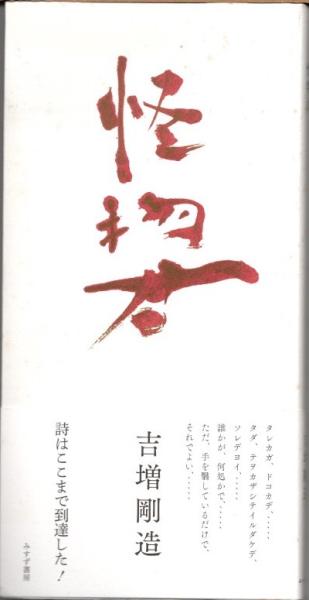 怪物君
タレカガ、ドコカデ、......
タダ、テヲカザシテイルダケデ、
ソレデヨイ、......
誰かが、何処かで、......
ただ、手を翳しているだけで、
それでよい、......
吉増剛造
詩はここまで到達した！
みすず書房